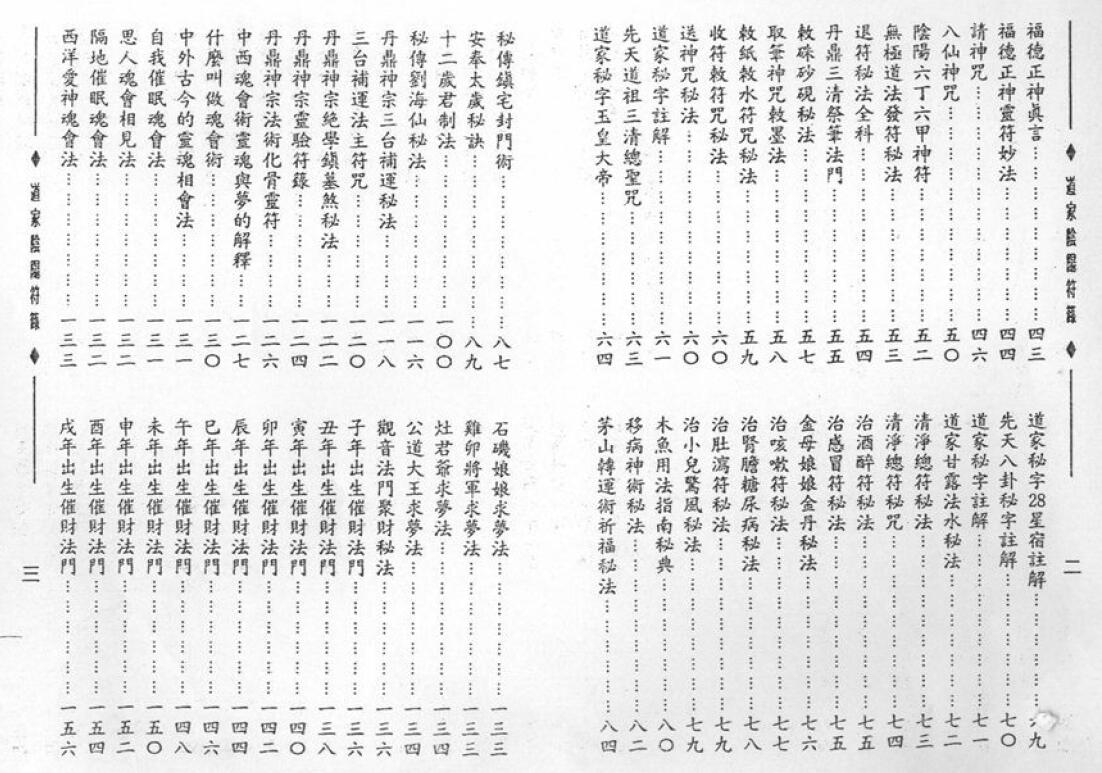 道家陰陽符籙
二
福德正神眞言……四三
福德正神靈符妙法……四四
請神咒……四六
八仙神咒……五〇
陰陽六丁六甲神符……五二
無極道法發符秘法……五三
退符秘法全科……五四
丹鼎三清祭筆法門……五五
敕硃砂硯秘法……五七
取筆神咒敕墨法……五八
敕紙敕水符咒秘法……五九
收符敕符咒秘法……六〇
送神咒秘法……六〇
道家秘字註解……六一
先天道祖三清總聖咒……六三
道家秘字玉皇大帝……六四
道家秘字28星宿註解……六九
先天八卦秘字註解……七〇
道家秘字註解……七一
道家甘露法水秘法……七二
清淨總符秘法……七三
清淨總符秘咒……七四
治酒醉符秘法……七五
治感冒符秘法……七五
金母娘娘金丹秘法……七六
治咳嗽符秘法……七七
治腎膽糖尿病秘法……七八
治肚瀉符秘法……七九
治小兒驚風秘法……七九
木魚用法指南秘典……八〇
移病神術秘法……八二
茅山轉運術祈福秘法……八四
秘傳鎮宅封門術……八七
安奉太歲秘訣……八九
十二歲君制法……一〇〇
秘傳劉海仙秘法……一一六
丹鼎神宗三台補運秘法……一一八
三台補運法主符咒……一二〇
丹鼎神宗絕學鎮墓煞秘法……一二二
丹鼎神宗靈驗符籙……一二四
丹鼎神宗法術化骨靈符……一二六
中西魂會術靈魂與夢的解釋……一二七
什麼叫做魂會術……一三〇
中外古今的靈魂相會法……一三一
自我催眠魂會法……一三一
思人魂會相見法……一三二
隔地催眠魂會法……一三二
西洋愛神魂會法……一三三
石磯娘娘求夢法……一三三
雞卯將軍求夢法……一三三
灶君爺求夢法……一三四
公道大王求夢法……一三四
觀音法門聚財秘法……一三六
子年出生催財法門……一三六
丑年出生催財法門……一三八
寅年出生催財法門……一四〇
卯年出生催財法門……一四二
辰年出生催財法門……一四四
巳年出生催財法門……一四六
午年出生催財法門……一四八
未年出生催財法門……一五〇
申年出生催財法門……一五二
酉年出生催財法門……一五四
戌年出生催財法門……一五六
道家陰陽符籙
三